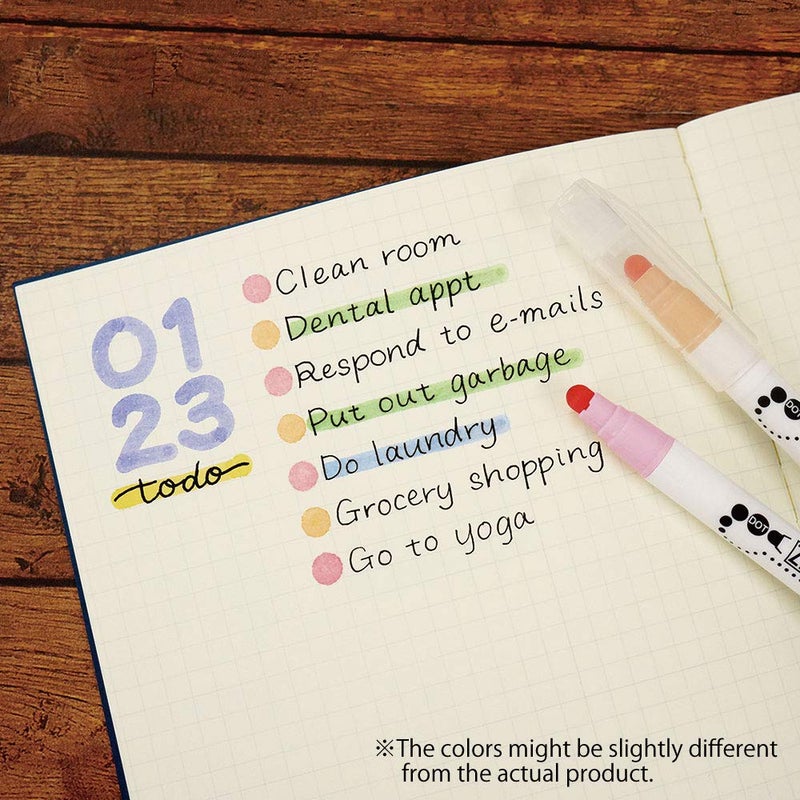 01
23
todo
Clean room
Dental appt
Respond to e-mails
Put out garbage
Do laundry
Grocery shopping
Go to yoga
DOT
DOT
※The colors might be slightly different
from the actual product.